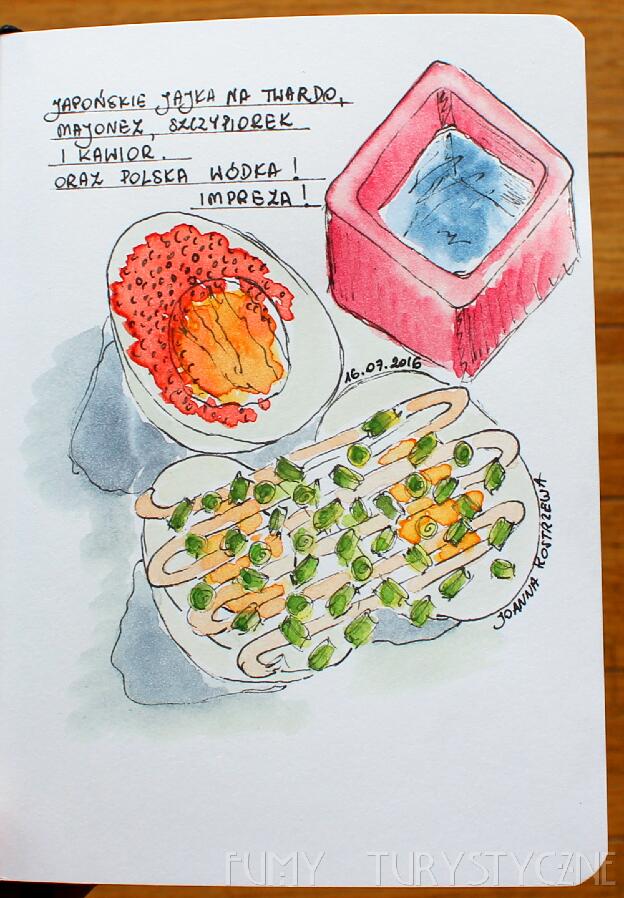 JAPOŃSKIE JAJKA NA TWARDO,
MAJONEZ, SZCZYPIOREK
I KAWIOR.
ORAZ POLSKA WÓDKA!
IMPREZA!
16.07.2016
JOANNA ROSTRZEWA
FUMY TURYSTYCZNE